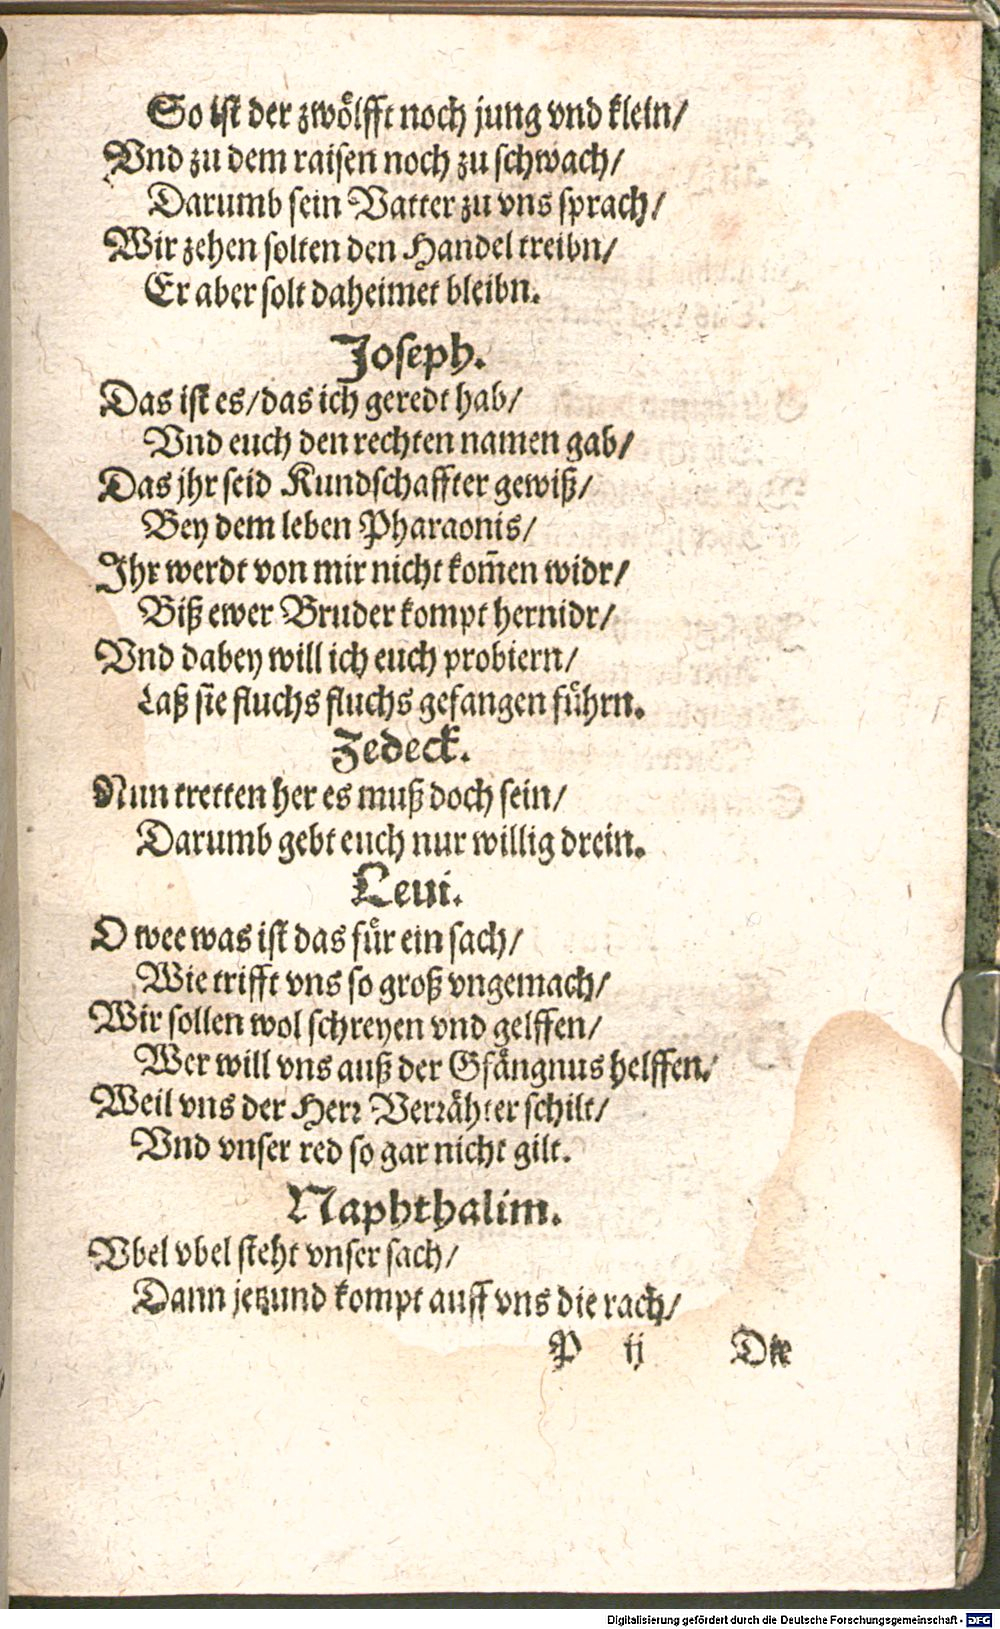 So ist der zwölfft noch jung vnd klein/
Vnd zu dem raisen noch zu schwach/
Darumb sein Vatter zu vns sprach/
Wir zehen solten den Handel treibn/
Er aber solt daheimet bleibn.
Joseph.
Das ist es/das ich geredt hab/
Vnd euch den rechten namen gab/
Das jhr seid Kundschaffter gewiß/
Bey dem leben Pharaonis/
Ihr werdt von mir nicht kom̃en widr/
Biß ewer Bruder kompt hernidr/
Vnd dabey will ich euch probiern/
Laß sie fluchs fluchs gefangen führn.
Zedeck.
Nun tretten her es muß doch sein/
Darumb gebt euch nur willig drein.
Leui.
O wee was ist das für ein sach/
Wie trifft vns so groß vngemach/
Wir sollen wol schreyen vnd gelffen/
Wer will vns auß der Gfängnus helffen/
Weil vns der Herr Verrähter schilt/
Vnd vnser red so gar nicht gilt.
Naphthalim.
Vbel vbel steht vnser sach/
Dann jetzund kompt auff vns die rach/
P ij Die
Digitalisierung gefördert durch die Deutsche Forschungsgemeinschaft - DFG